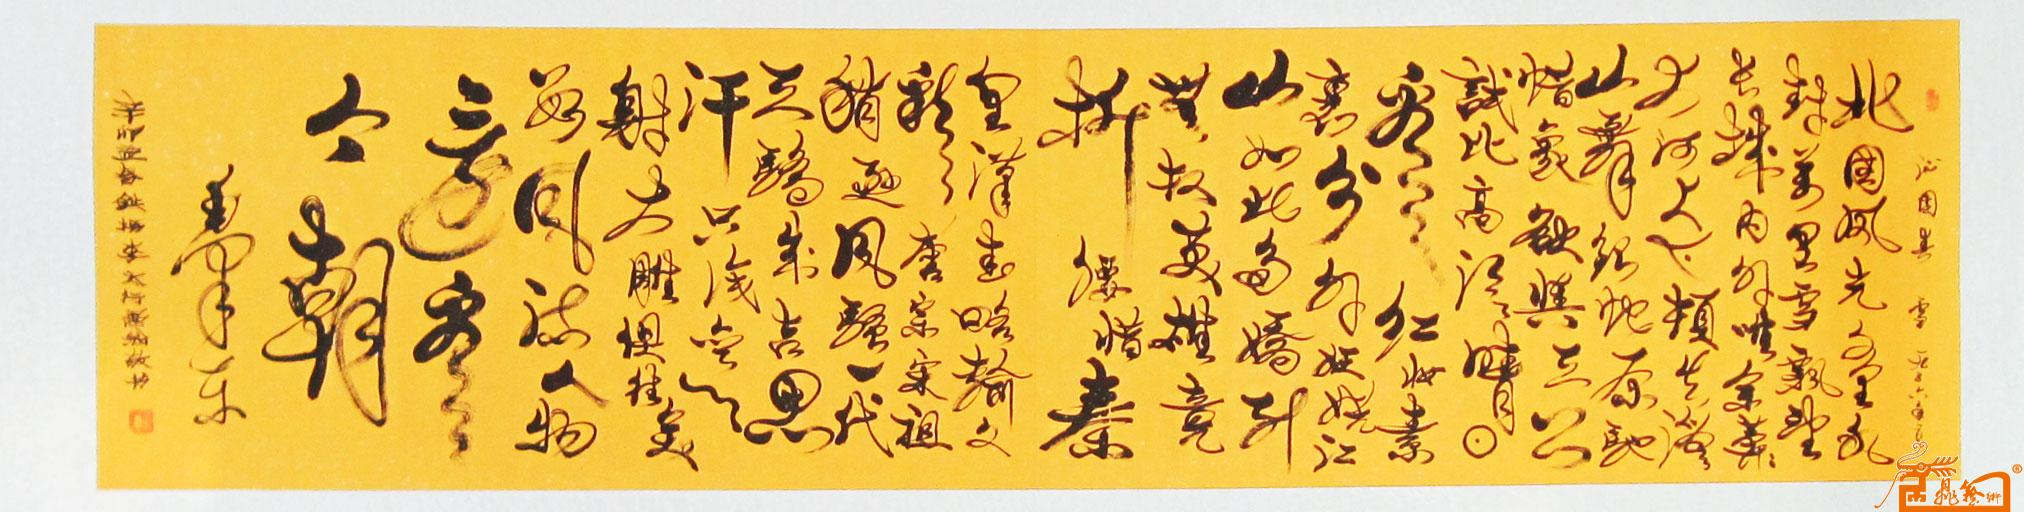 沁园春 雪 一九三六年二月
北国风光千里冰
封万里雪飘望
长城内外惟余莽莽
大河上下顿失滔滔
山舞银蛇原驰
蜡象欲与天公
试比高须晴日
看红妆素
裹分外妖娆江
山如此多娇引
无数英雄竞
折腰惜秦
皇汉武略输文
彩唐宗宋祖
稍逊风骚一代
天骄成吉思
汗只识弯弓
射大雕俱往矣
数风流人物
还看
今朝
毛泽东